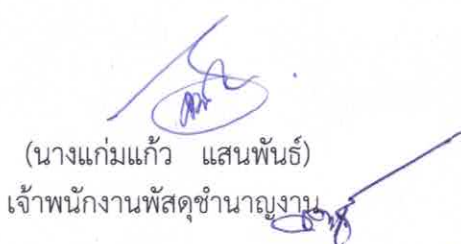 (นางแก่มแก้ว แสนพันธ์)
เจ้าพนักงานพัสดุชำนาญงาน